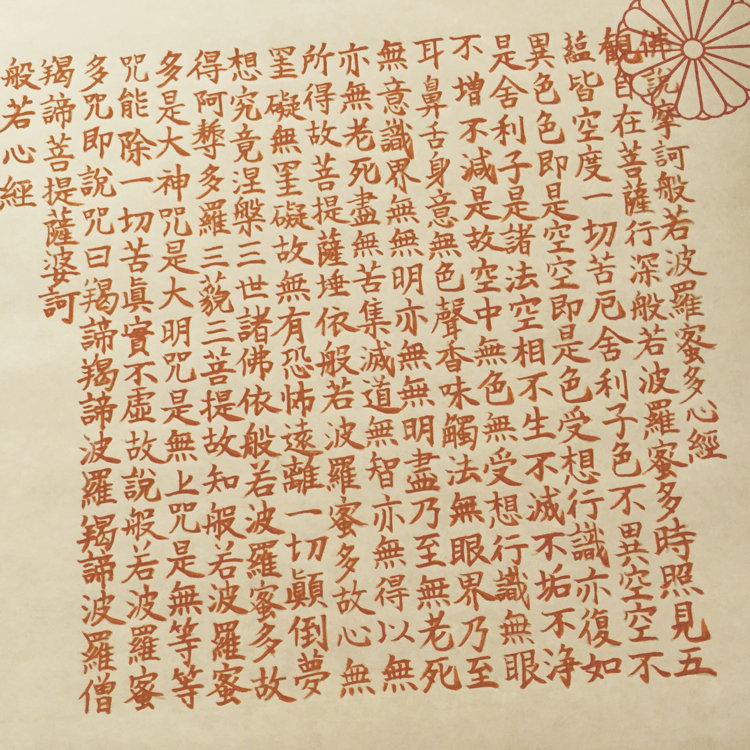 佛説摩訶般若波羅蜜多心經
観自在菩薩行深般若波羅蜜多時照見五
蘊皆空度一切苦厄舍利子色不異空空不
異色色即是空空即是色受想行識亦復如
是舍利子是諸法空相不生不滅不垢不浄
不増不減是故空中無色無受想行識無眼
耳鼻舌身意無色聲香味觸法無眼界乃至
無意識界無無明亦無無明盡乃至無老死
亦無老死盡無苦集滅道無智亦無得以無
所得故菩提薩埵依般若波羅蜜多故心無
罣礙無罣礙故無有恐怖遠離一切顚倒夢
想究竟涅槃三世諸佛依般若波羅蜜多故
得阿耨多羅三藐三菩提故知般若波羅蜜
多是大神咒是大明咒是無上咒是無等等
咒能除一切苦眞實不虚故説般若波羅蜜
多咒即説咒曰羯諦羯諦波羅羯諦波羅僧
羯諦菩提薩婆訶
般若心經